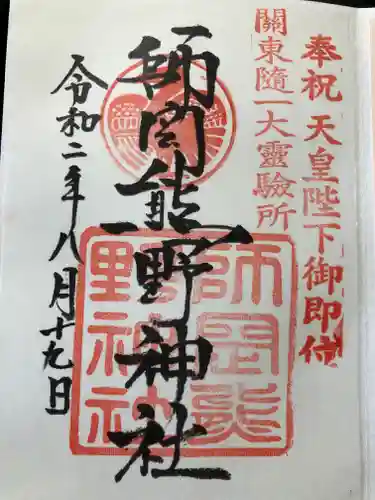 奉祝天皇陛下御即位
關東隨一大靈驗所
師岡熊野神社
師岡熊野神社
令和二年八月十九日